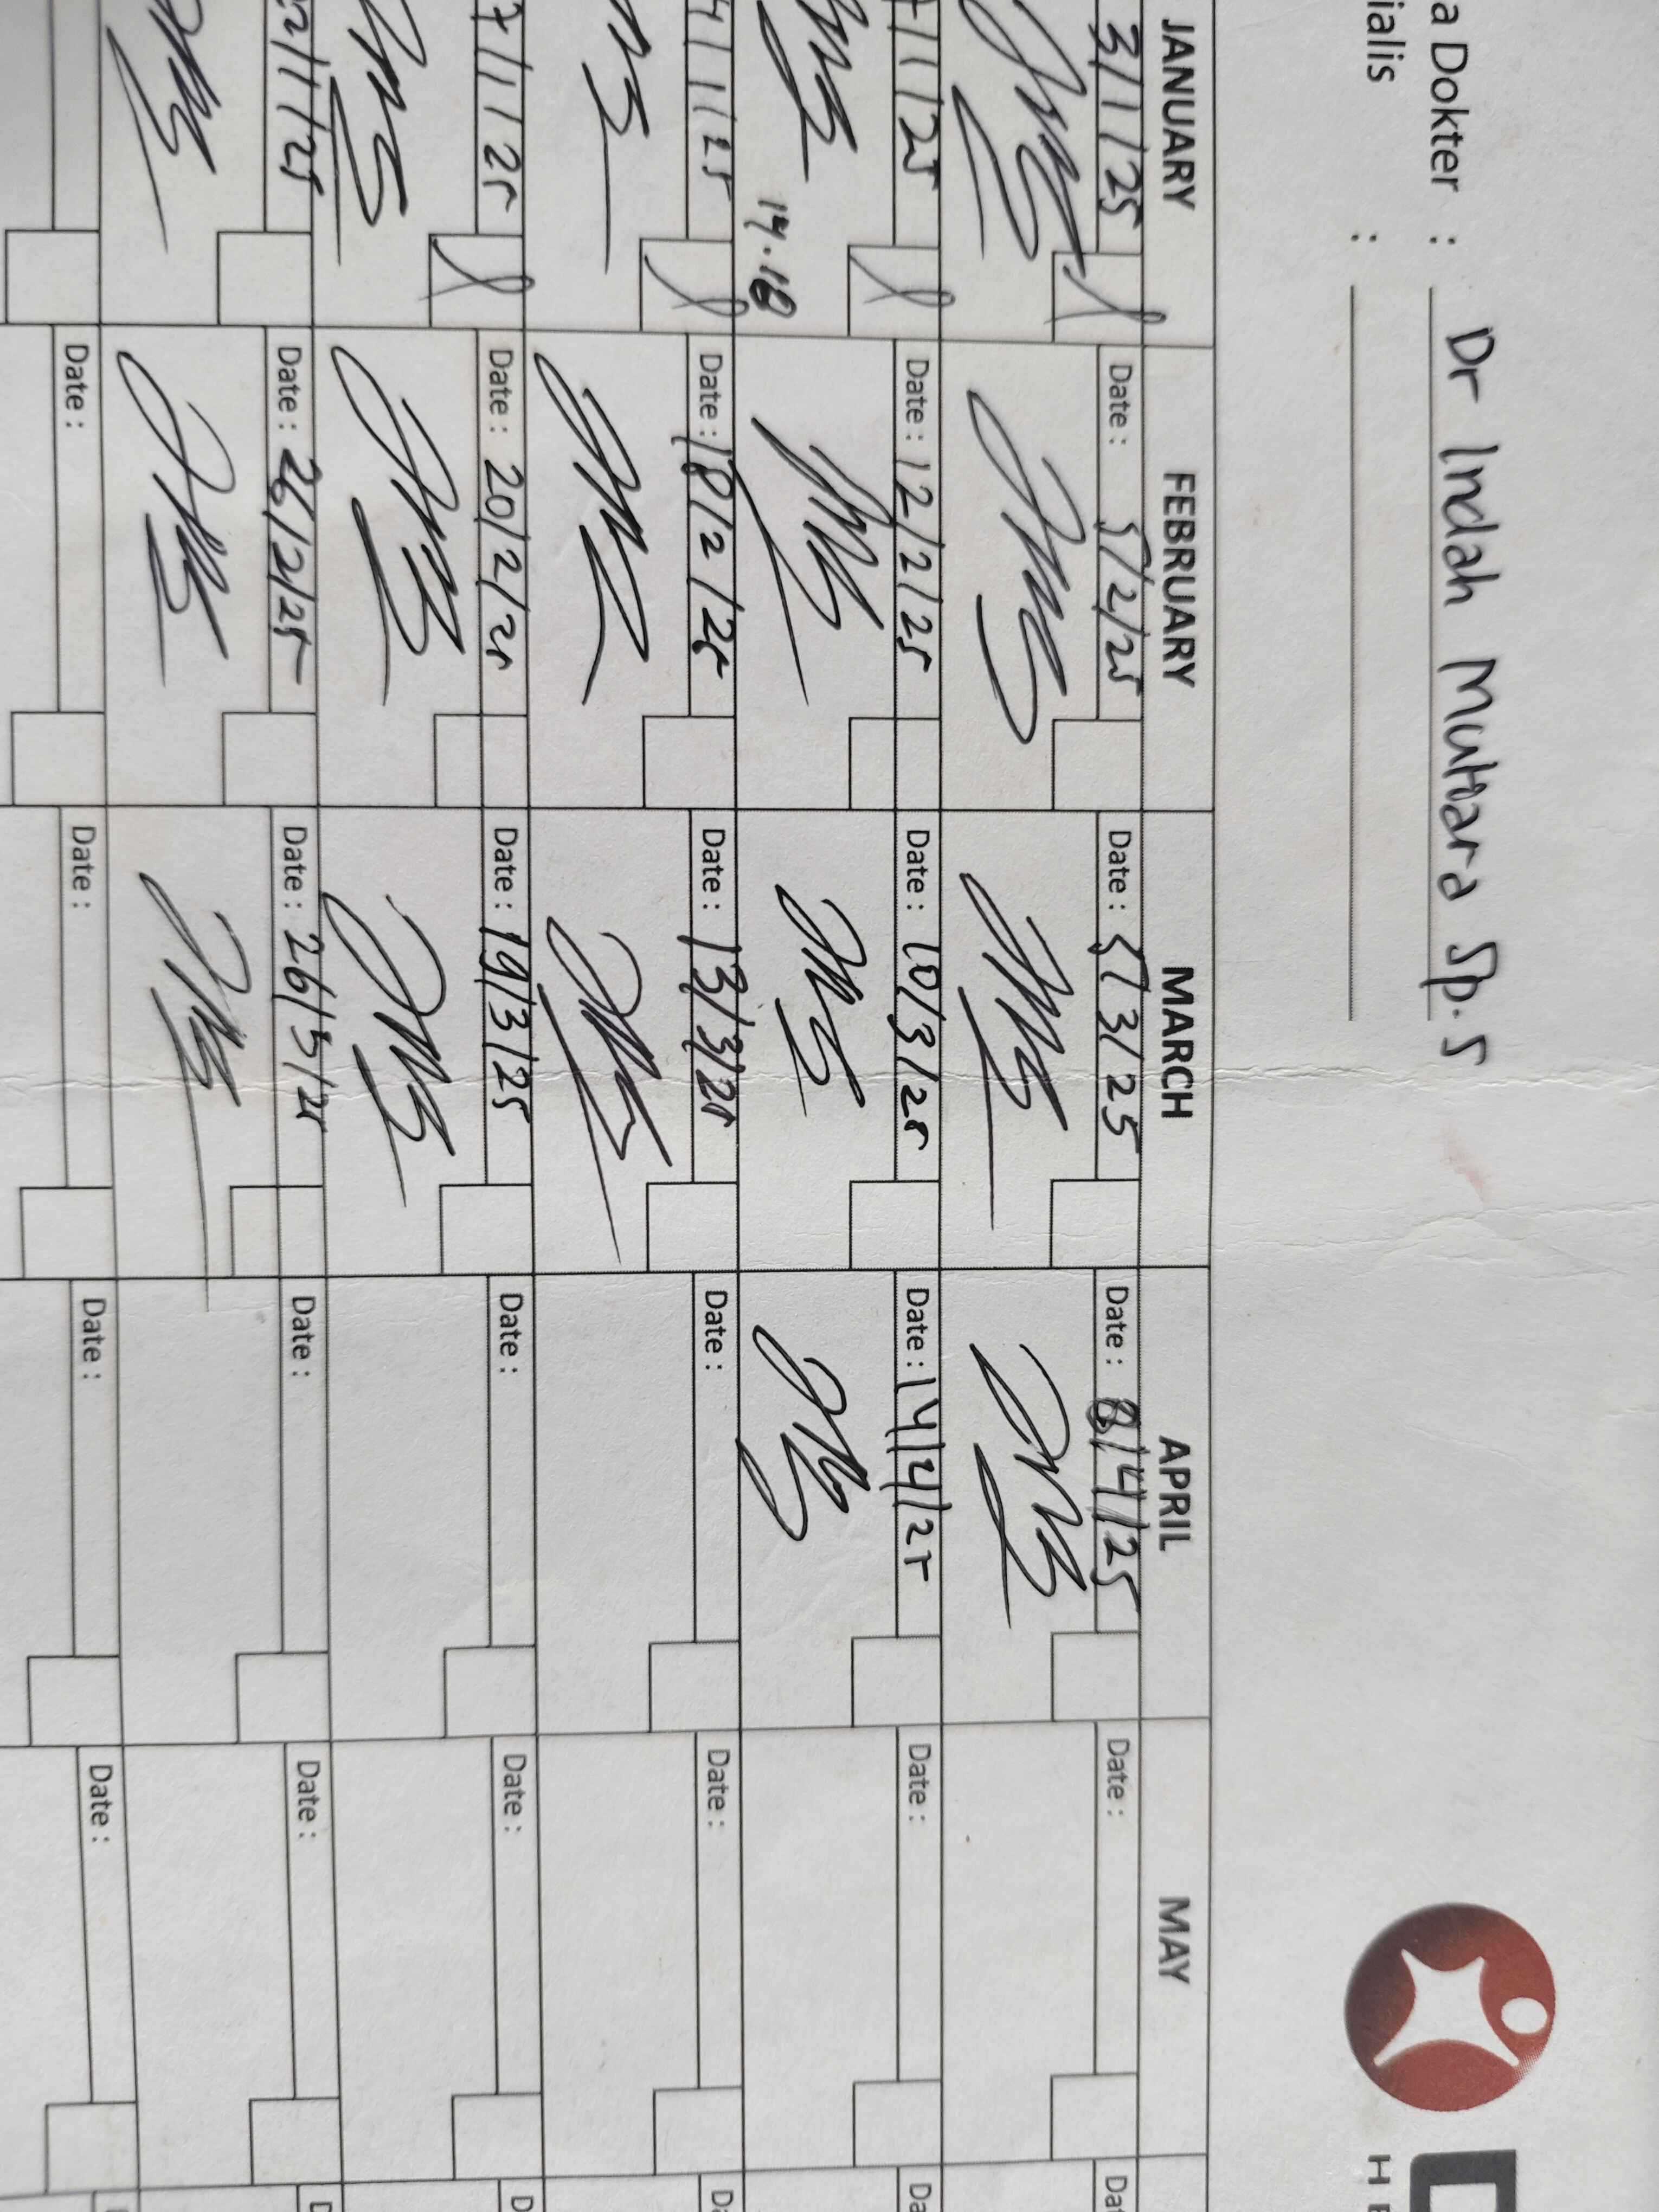 a Dokter : Dr Indah Mutiara Sp.S
ialis :
JANUARY FEBRUARY MARCH APRIL MAY
3/1/25 Date : 5/2/25 Date : 5/3/25 Date : 8/4/25 Date : Dat
/1/25 Date : 12/2/25 Date : 10/3/25 Date : 14/4/25 Date : Da
14.18
4/1/25 Date : 18/2/25 Date : 13/3/25 Date : Date : Da
7/1/25 Date : 20/2/25 Date : 19/3/25 Date : Date : D
22/1/25 Date : 26/2/25 Date : 26/3/25 Date : Date : D
Date : Date : Date : Date :